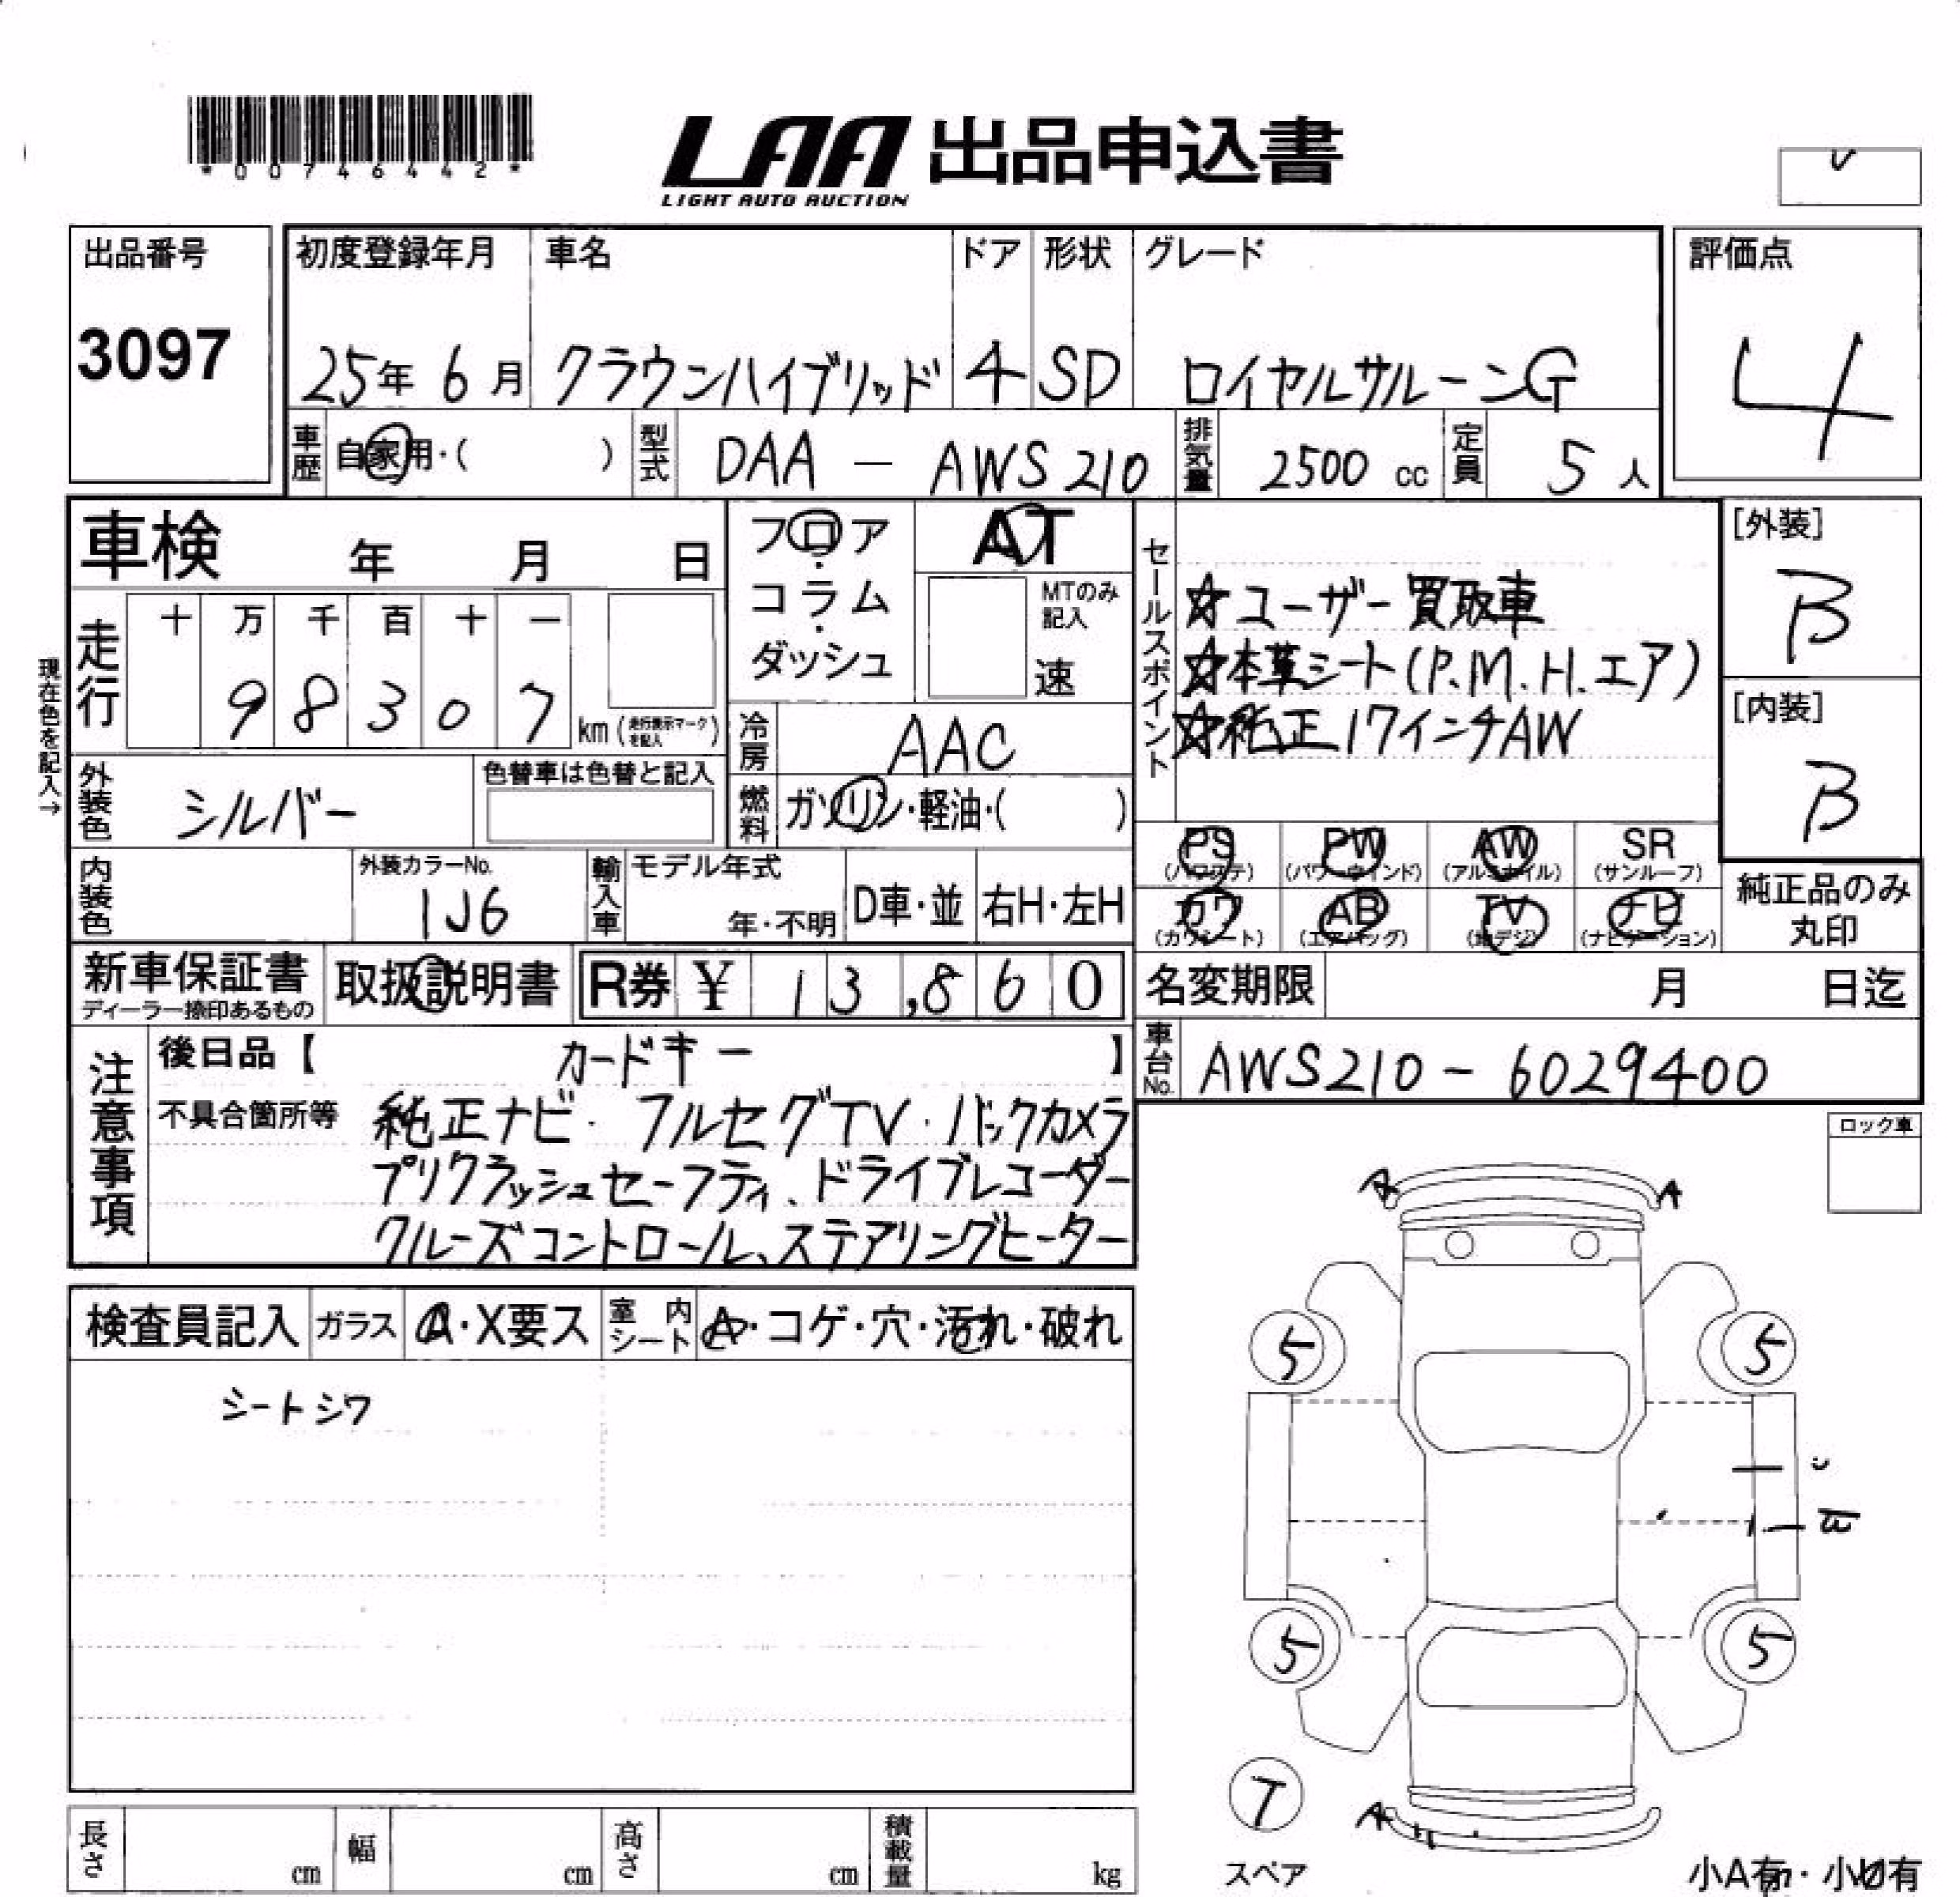 *00746442*
LAA 出品申込書
LIGHT AUTO AUCTION
出品番号 3097
初度登録年月 25年 6月
車名 クラウンハイブリッド
ドア 4
形状 SD
グレード ロイヤルサルーンG
評価点 4
車歴 自家用・( )
型式 DAA - AWS210
排気量 2500 cc
定員 5人
車検 年 月 日
フロア・コラム・ダッシュ
AT
MTのみ記入
速
セールスポイント
☆ユーザー買取車
☆本革シート(P.M.H.エア)
☆純正17インチAW
[外装] B
[内装] B
現在色を記入→
走行 十 万 千 百 十 一
98307 km (走行表示マークを記入)
冷房 AAC
燃料 ガソリン・軽油・( )
外装色 シルバー
色替車は色替と記入
内装色
外装カラーNo. 1J6
輸入車 モデル年式 年・不明
D車・並 右H・左H
PS (パワステ) PW (パワーウインド) AW (アルミホイル) SR (サンルーフ)
カワ (カワシート) AB (エアバッグ) TV (地デジ) ナビ (ナビゲーション)
純正品のみ丸印
新車保証書 ディーラー捺印あるもの
取扱説明書
R券 ¥ 13,860
名変期限 月 日迄
車台No. AWS210-6029400
注意事項
後日品【 カードキー 】
不具合箇所等 純正ナビ・フルセグTV・バックカメラ
プリクラッシュセーフティ、ドライブレコーダー
クルーズコントロール、ステアリングヒーター
ロック車
検査員記入 ガラス A・X要ス 室内シート A・コゲ・穴・汚れ・破れ
シートシワ
A A
5 5
5 5
T
スペア
A
長さ cm 幅 cm 高さ cm 積載量 kg
小A有・小U有